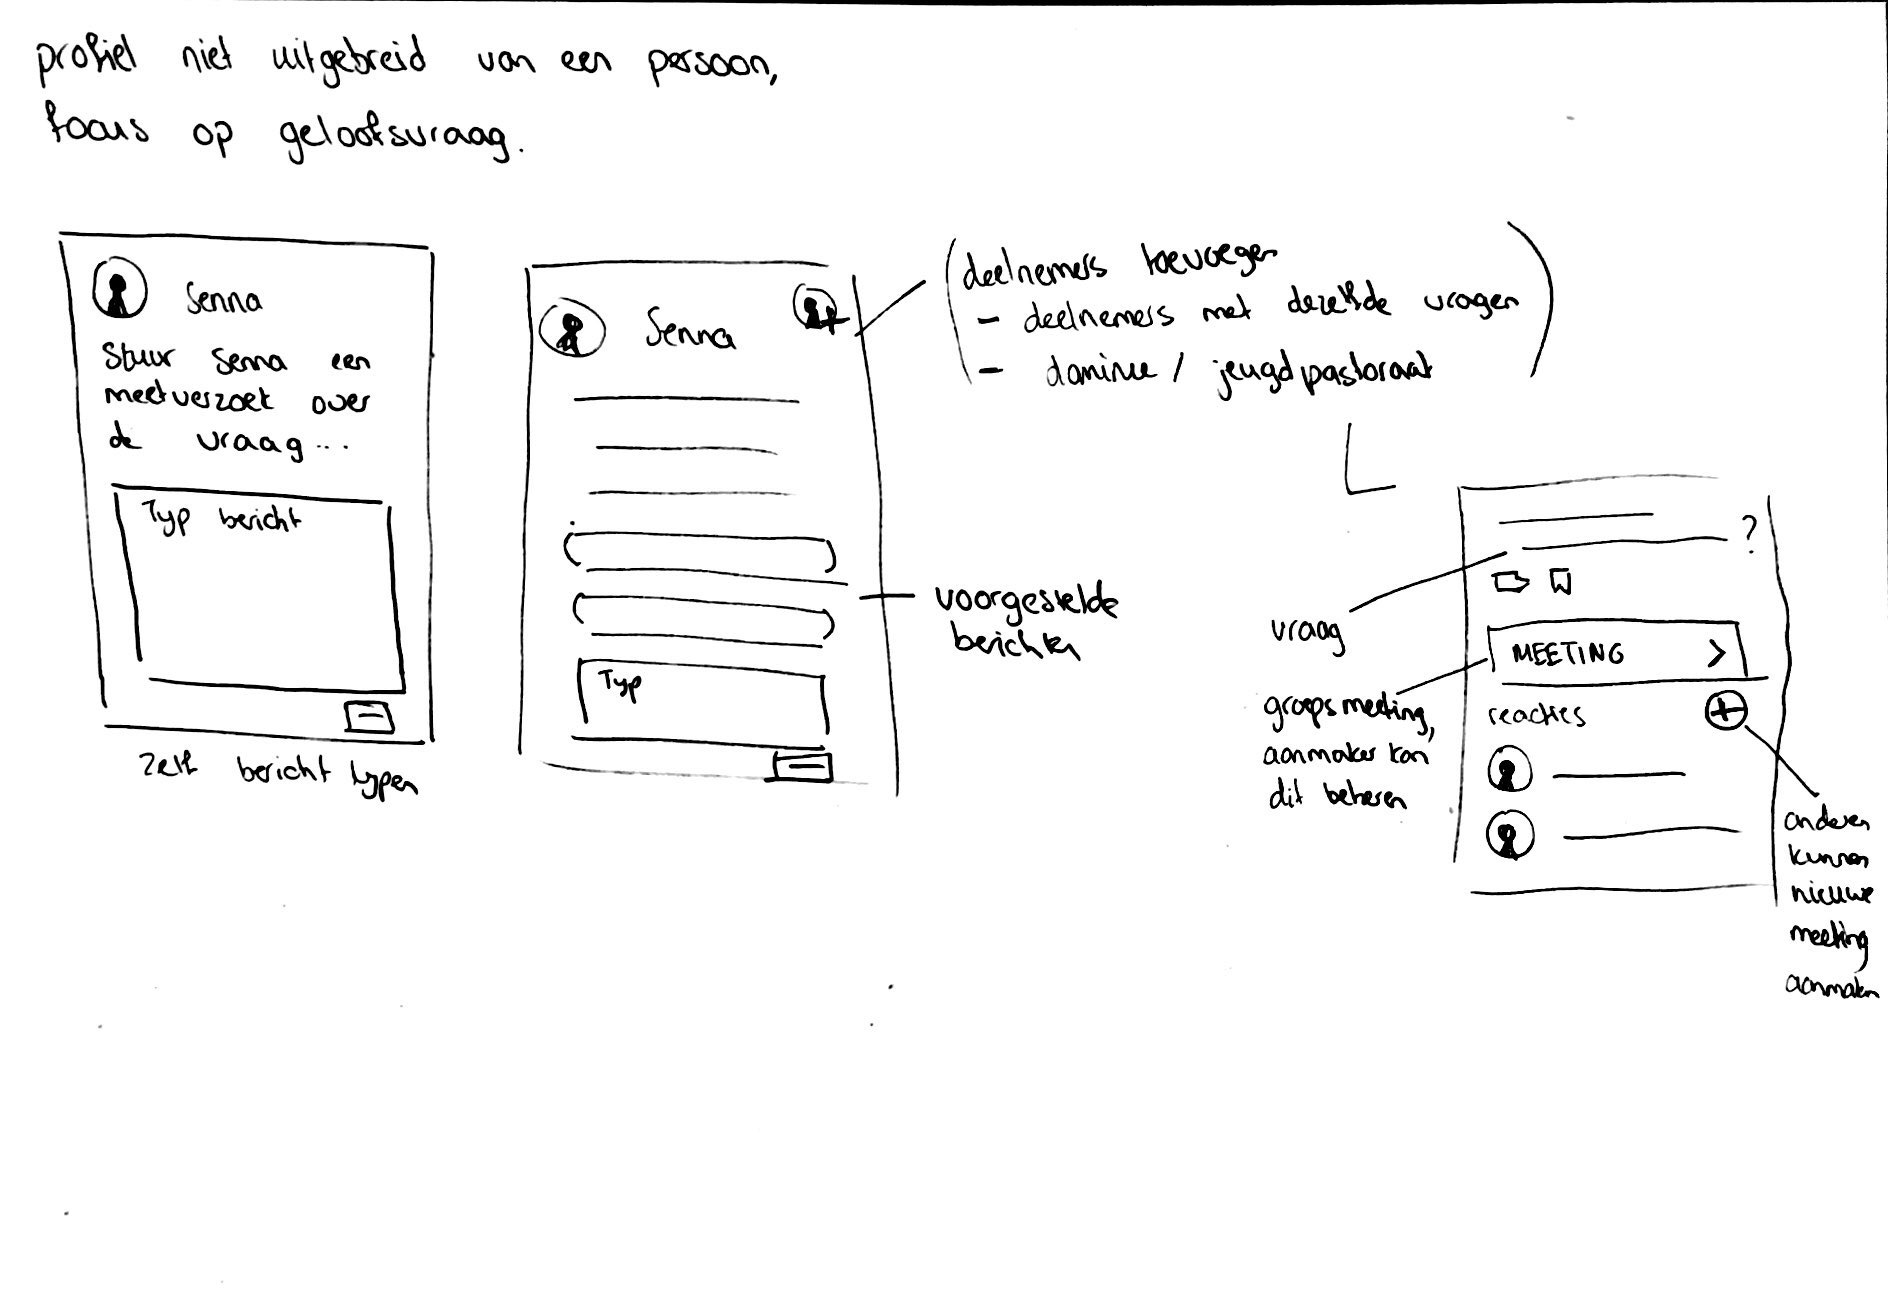 profiel niet uitgebreid van een persoon,
focus op geloofsvraag.
Senna
Stuur Senna een
meetverzoek over
de vraag...
Typ bericht
zelf bericht typen
Senna
Typ
deelnemers toevoegen
- deelnemers met dezelfde vragen
- dominee / jeugdpastoraat
voorgestelde
berichten
?
vraag
MEETING >
groepsmeeting,
aanmaker kan
dit beheren
reacties
anderen
kunnen
nieuwe
meeting
aanmaken